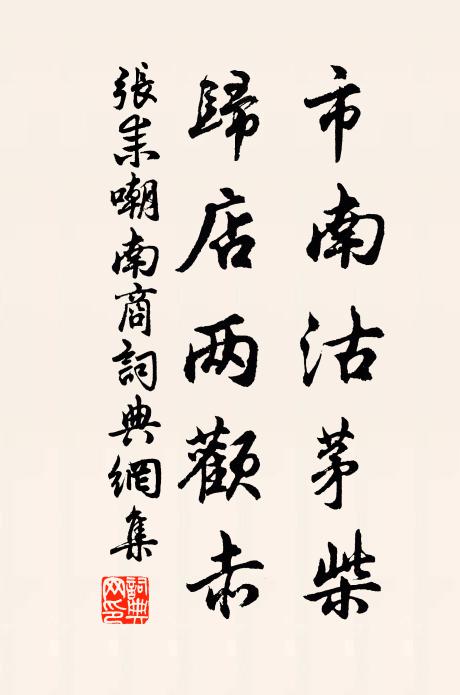 市南沽茅柴
歸店两顴赤
張耒嘲南商詞典網集
詞典网印